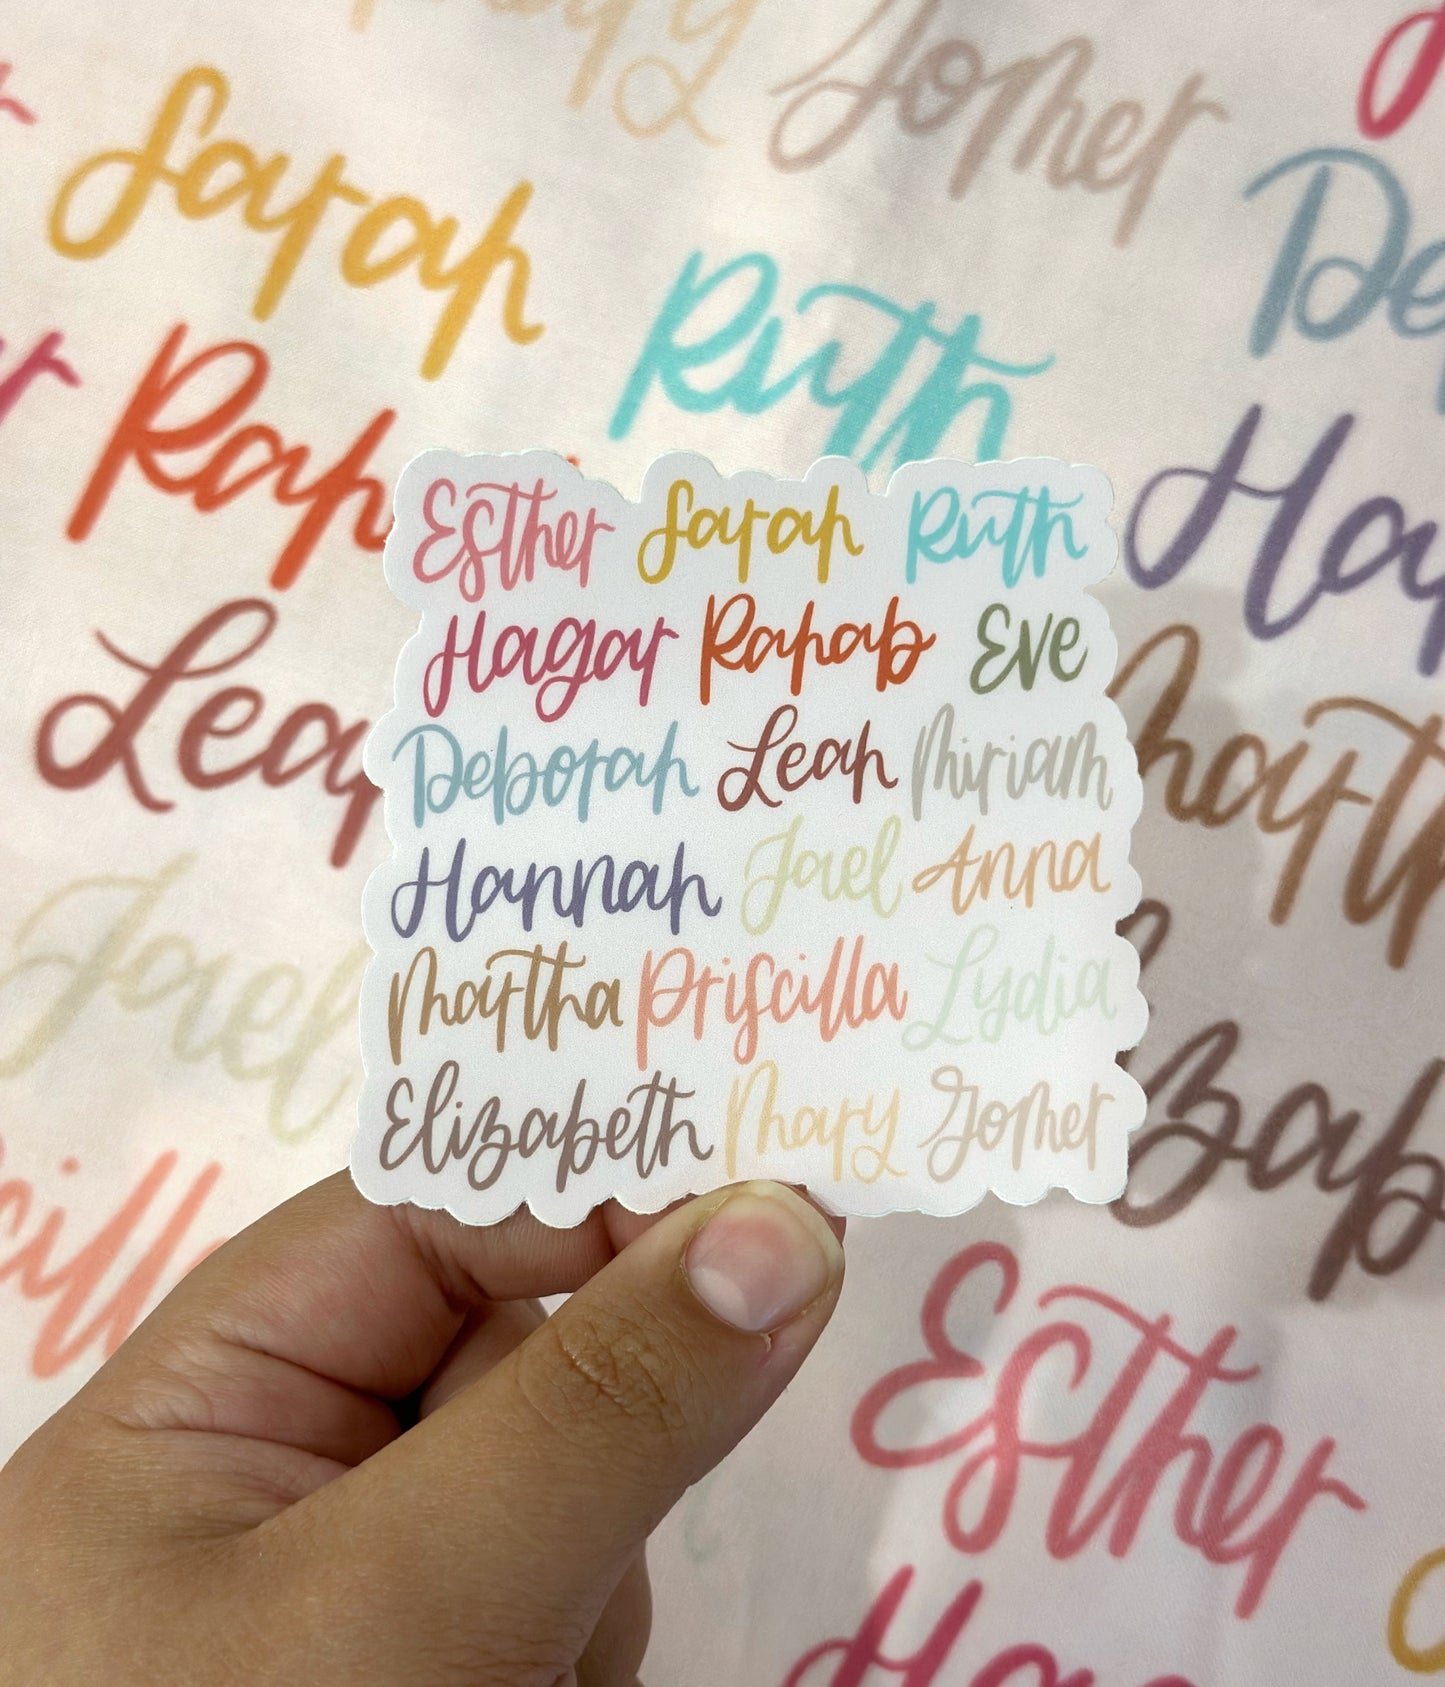 Gomer
Sarah
Ruth
Leah
Jael
Esther Sarah Ruth
Hagar Rahab Eve
Deborah Leah Miriam
Hannah Jael Anna
Martha Priscilla Lydia
Elizabeth Mary Gomer
Esther